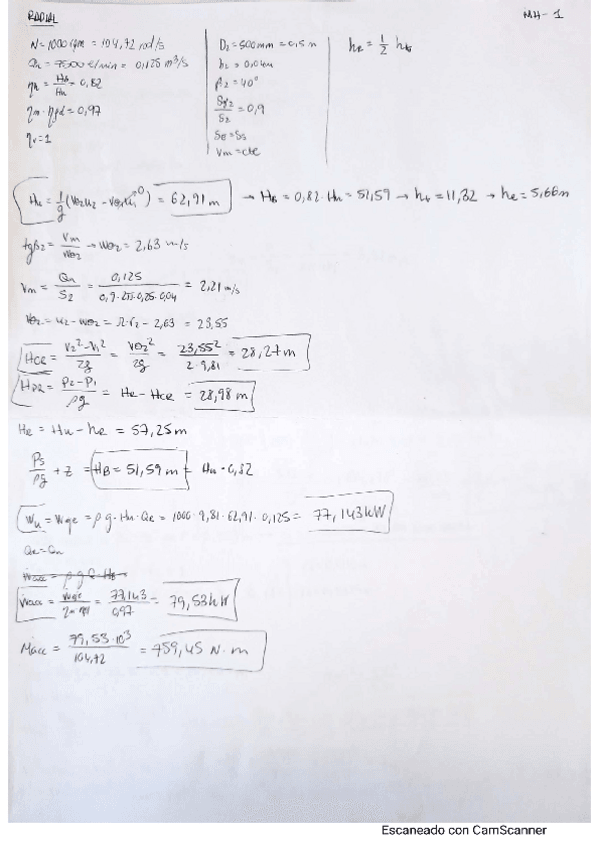 RADIAL
MH-1
N=1000 rpm = 104,72 rad/s
Qn = 7500 l/min = 0,125 m³/s
ηh = HB/Hu = 0,82
ηm · ηfd = 0,97
ηv=1
D2=500mm=0,5m
b2=0,04m
β2=40°
Sf2/S2=0,9
SE=SS
Vm=cte
hR = 1/2 ht
Hu = 1/g (Vθ2u2 - Vθ1u1→0) = 62,91 m → HB = 0,82·Hu = 51,59 → ht = 11,32 → hR = 5,66m
tgβ2 = Vm/Wθ2 → Wθ2 = 2,63 m/s
Vm = Qn/S2 = 0,125/0,9·2π·0,25·0,04 = 2,21 m/s
Vθ2 = u2 - wθ2 = Ω·r2 - 2,63 = 23,55
HCR = V2²-V1²/2g = Vθ2²/2g = 23,55²/2·9,81 = 28,27 m
HPR = P2-P1/ρg = HR - HCR = 28,98 m
HR = Hu - hR = 57,25 m
PS/ρg + z = HB = 51,59 m = Hu·0,82
Wu = Wge = ρg·Hu·QR = 1000·9,81·62,91·0,125 = 77,143kW
QR=Qn
Wacc = ρ g Q HB
Wacc = Wge/ηm·ηfd = 77,143/0,97 = 79,53kW
Macc = 79,53·10³/104,72 = 759,45 N·m
Escaneado con CamScanner